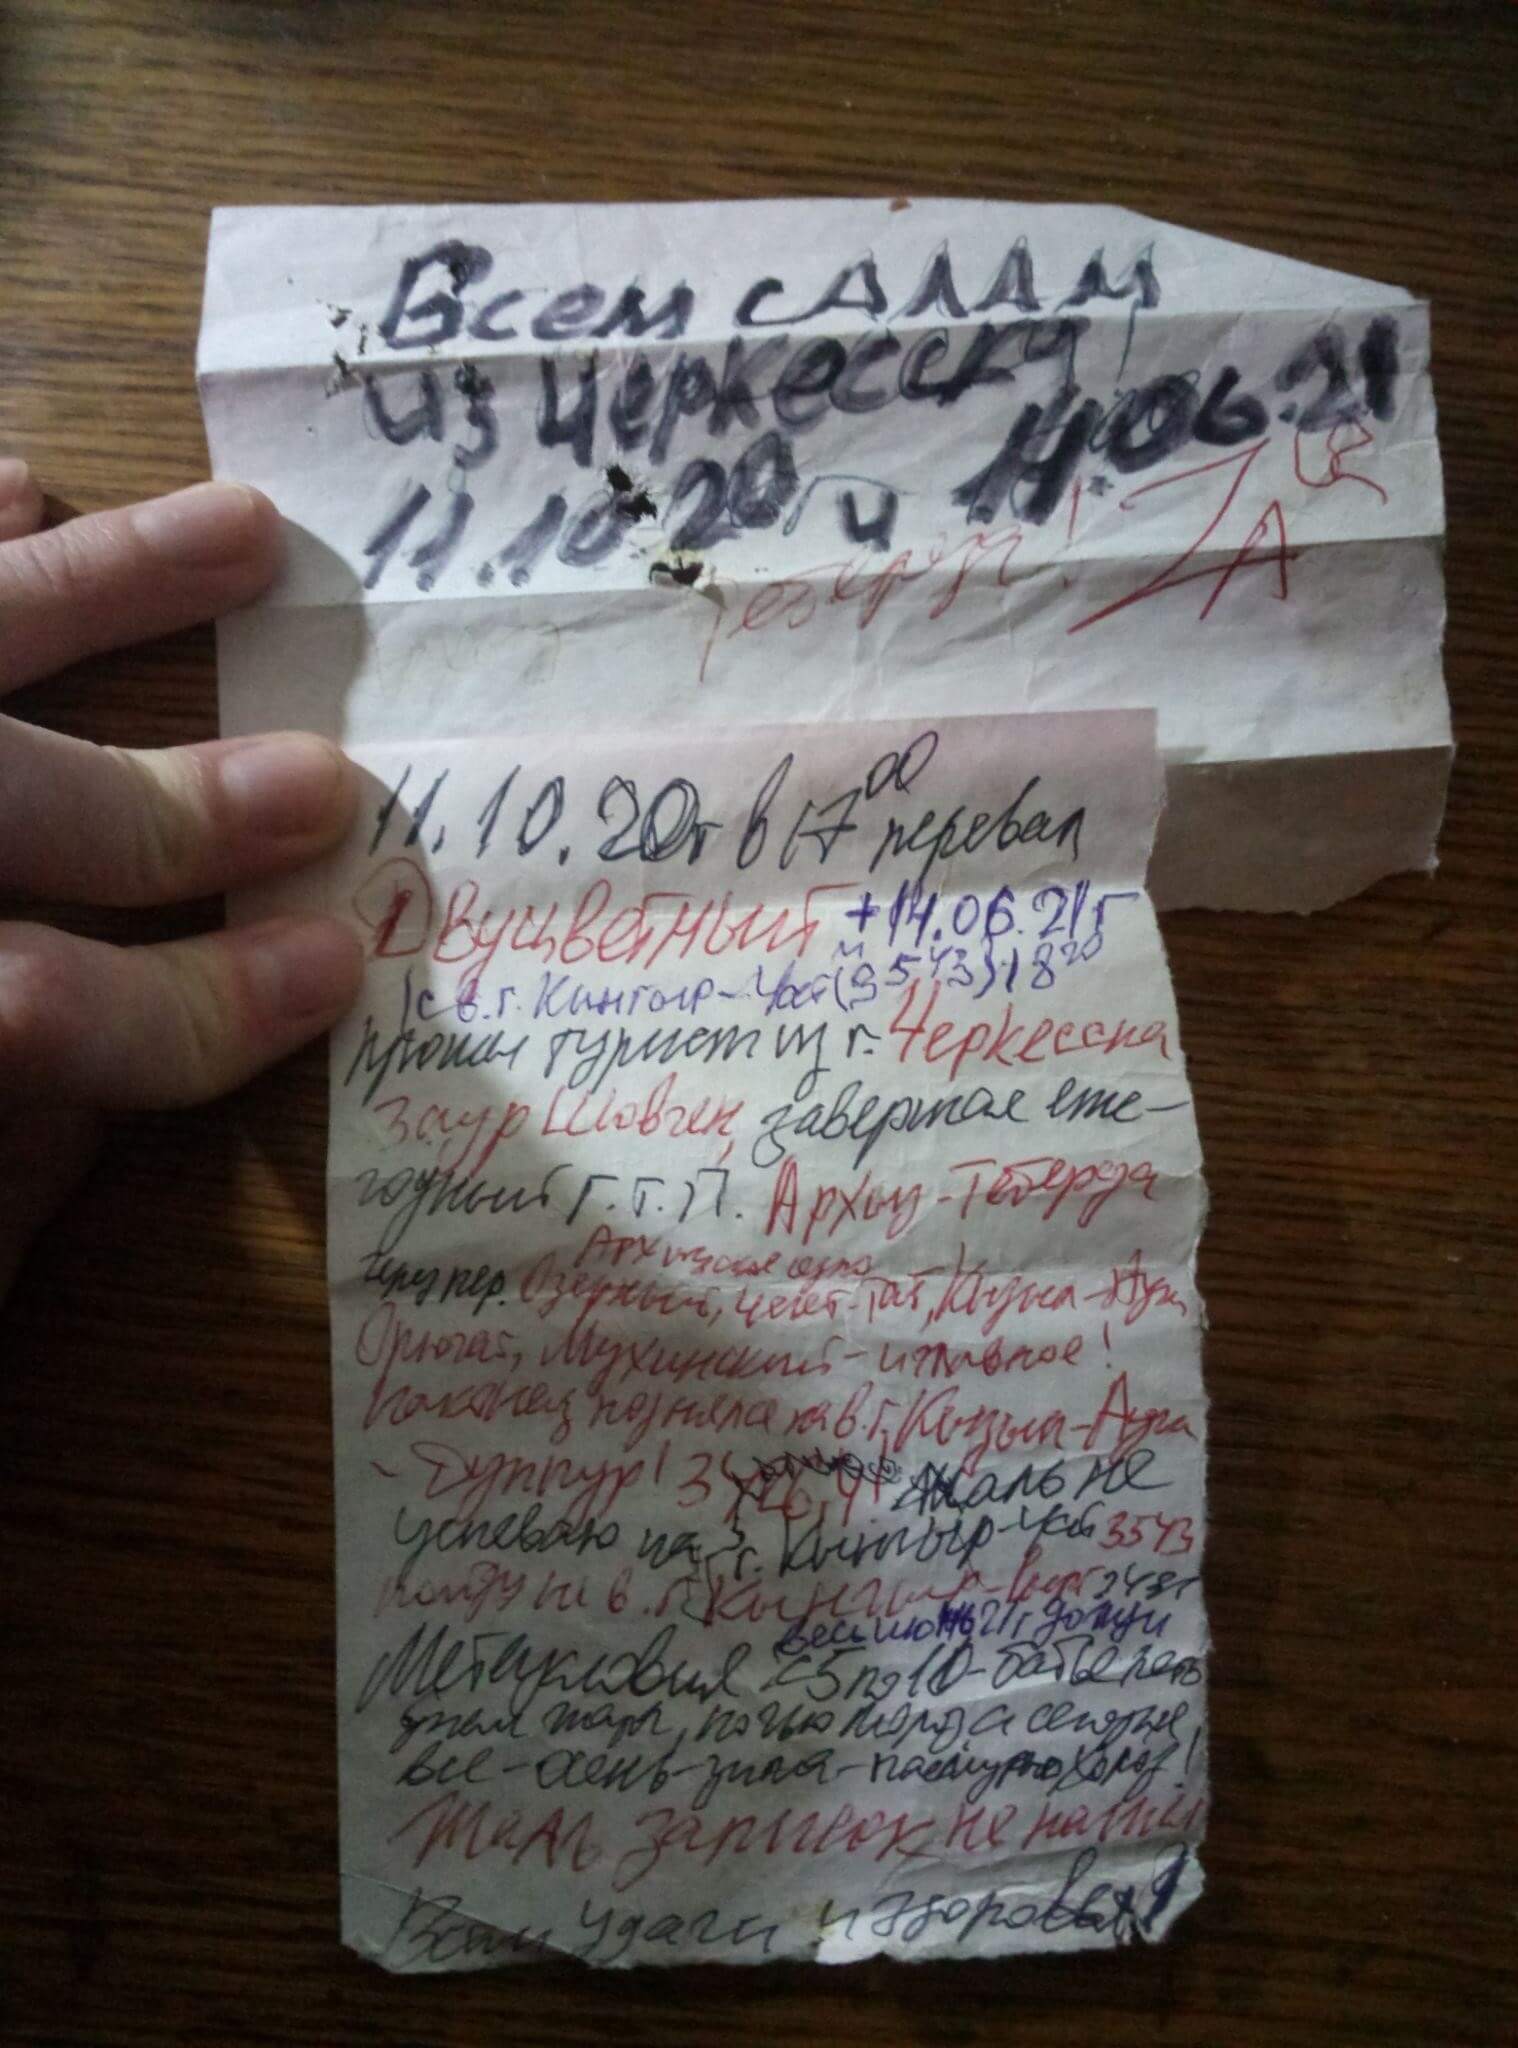 Всем сАЛАМ
из Черкесску!
11.10.20г и 14.06.21
Теберды!
11.10.20г в 17⁰⁰ перевал
Двуцветный + 14.06.21г
(с в.г. Кынгыр-Чат (3543м) 18²⁰
прошел турист из г. Черкесска
Заур Шовген, завершая еже-
годный Г.Т.П. Архыз-Теберда
Архызское озеро
через пер. Озерный, Чегет-Чат, Кызыл-Ауш
Орючат, Мухинский - и главное!
наконец поднялся на в.г. Кызыл-Ауш
-Дуппур! Жаль не
успеваю на г. Кынгыр-Чат 3543
пойду на в.г. Кынгыр-
21г дойду
Метусловия с 5 по 10 - бабье лето
днем жара, ночью мороз а сегодня
все - осень-зима - пасмурно холод!
Жаль записок не нашел
Всем удачи и здоровья!